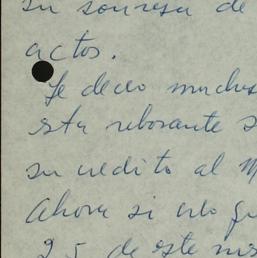 su sonrisa de
actos.
Le deseo muchas
esta rebosante s
su credito al M
Ahora si creo qu
25 de este mes